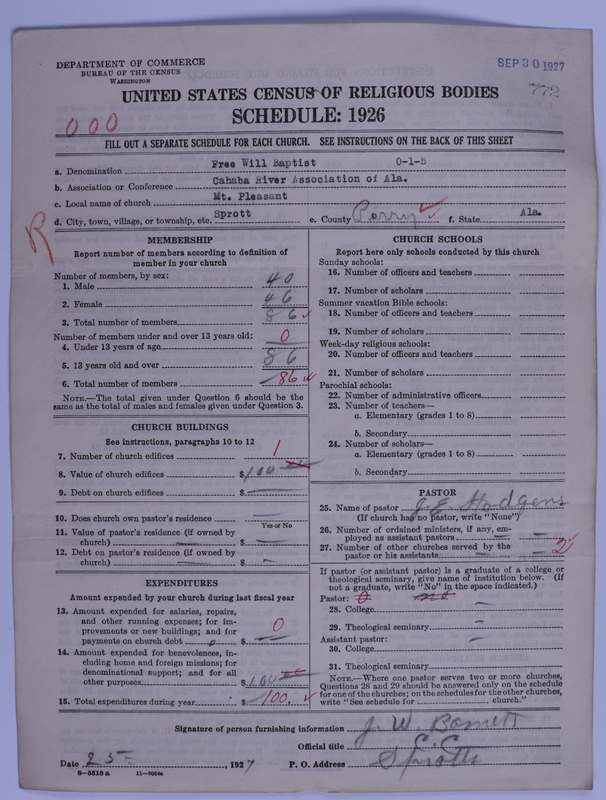 DEPARTMENT OF COMMERCE
BUREAU OF THE CENSUS
WASHINGTON
SEP 30 1927
772
UNITED STATES CENSUS OF RELIGIOUS BODIES
SCHEDULE: 1926
000
FILL OUT A SEPARATE SCHEDULE FOR EACH CHURCH. SEE INSTRUCTIONS ON THE BACK OF THIS SHEET
a. Denomination Free Will Baptist 0-1-5
b. Association or Conference Cahaba River Association of Ala.
c. Local name of church Mt. Pleasant
d. City, town, village, or township, etc. Sprott e. County Perry ✓ f. State Ala.
R
MEMBERSHIP
Report number of members according to definition of
member in your church
Number of members, by sex:
1. Male 40
2. Female 46
3. Total number of members 86 ✓
Number of members under and over 13 years old:
4. Under 13 years of age 0
5. 13 years old and over 86
6. Total number of members 86 ✓
NOTE.—The total given under Question 6 should be
same as the total of males and females given under Question 3.
CHURCH BUILDINGS
See instructions, paragraphs 10 to 12
7. Number of church edifices 1
8. Value of church edifices $100
9. Debt on church edifices $
10. Does church own pastor's residence
Yes or No
11. Value of pastor's residence (if owned by
church) $
12. Debt on pastor's residence (if owned by
church) $
EXPENDITURES
Amount expended by your church during last fiscal year
13. Amount expended for salaries, repairs,
and other running expenses; for im-
provements or new buildings; and for
payments on church debt $ 0
14. Amount expended for benevolences, in-
cluding home and foreign missions; for
denominational support; and for all
other purposes $100
15. Total expenditures during year $100. ✓
CHURCH SCHOOLS
Report here only schools conducted by this church
Sunday schools:
16. Number of officers and teachers
17. Number of scholars
Summer vacation Bible schools:
18. Number of officers and teachers
19. Number of scholars
Week-day religious schools:
20. Number of officers and teachers
21. Number of scholars
Parochial schools:
22. Number of administrative officers
23. Number of teachers—
a. Elementary (grades 1 to 8)
b. Secondary
24. Number of scholars—
a. Elementary (grades 1 to 8)
b. Secondary
PASTOR
25. Name of pastor J. E. Hodgens
(If church has no pastor, write "None")
26. Number of ordained ministers, if any, em-
ployed as assistant pastors
27. Number of other churches served by the
pastor or his assistants 2
If pastor (or assistant pastor) is a graduate of a college or
theological seminary, give name of institution below. (If
not a graduate, write "No" in the space indicated.)
Pastor: 0 no
28. College
29. Theological seminary
Assistant pastor:
30. College
31. Theological seminary
NOTE.—Where one pastor serves two or more churches,
Questions 28 and 29 should be answered only on the schedule
for one of the churches; on the schedules for the other churches,
write "See schedule for church."
Signature of person furnishing information J. W. Barnett
Official title
Date 25 , 1927 P. O. Address Sprott
8—5518 a 11—9024a